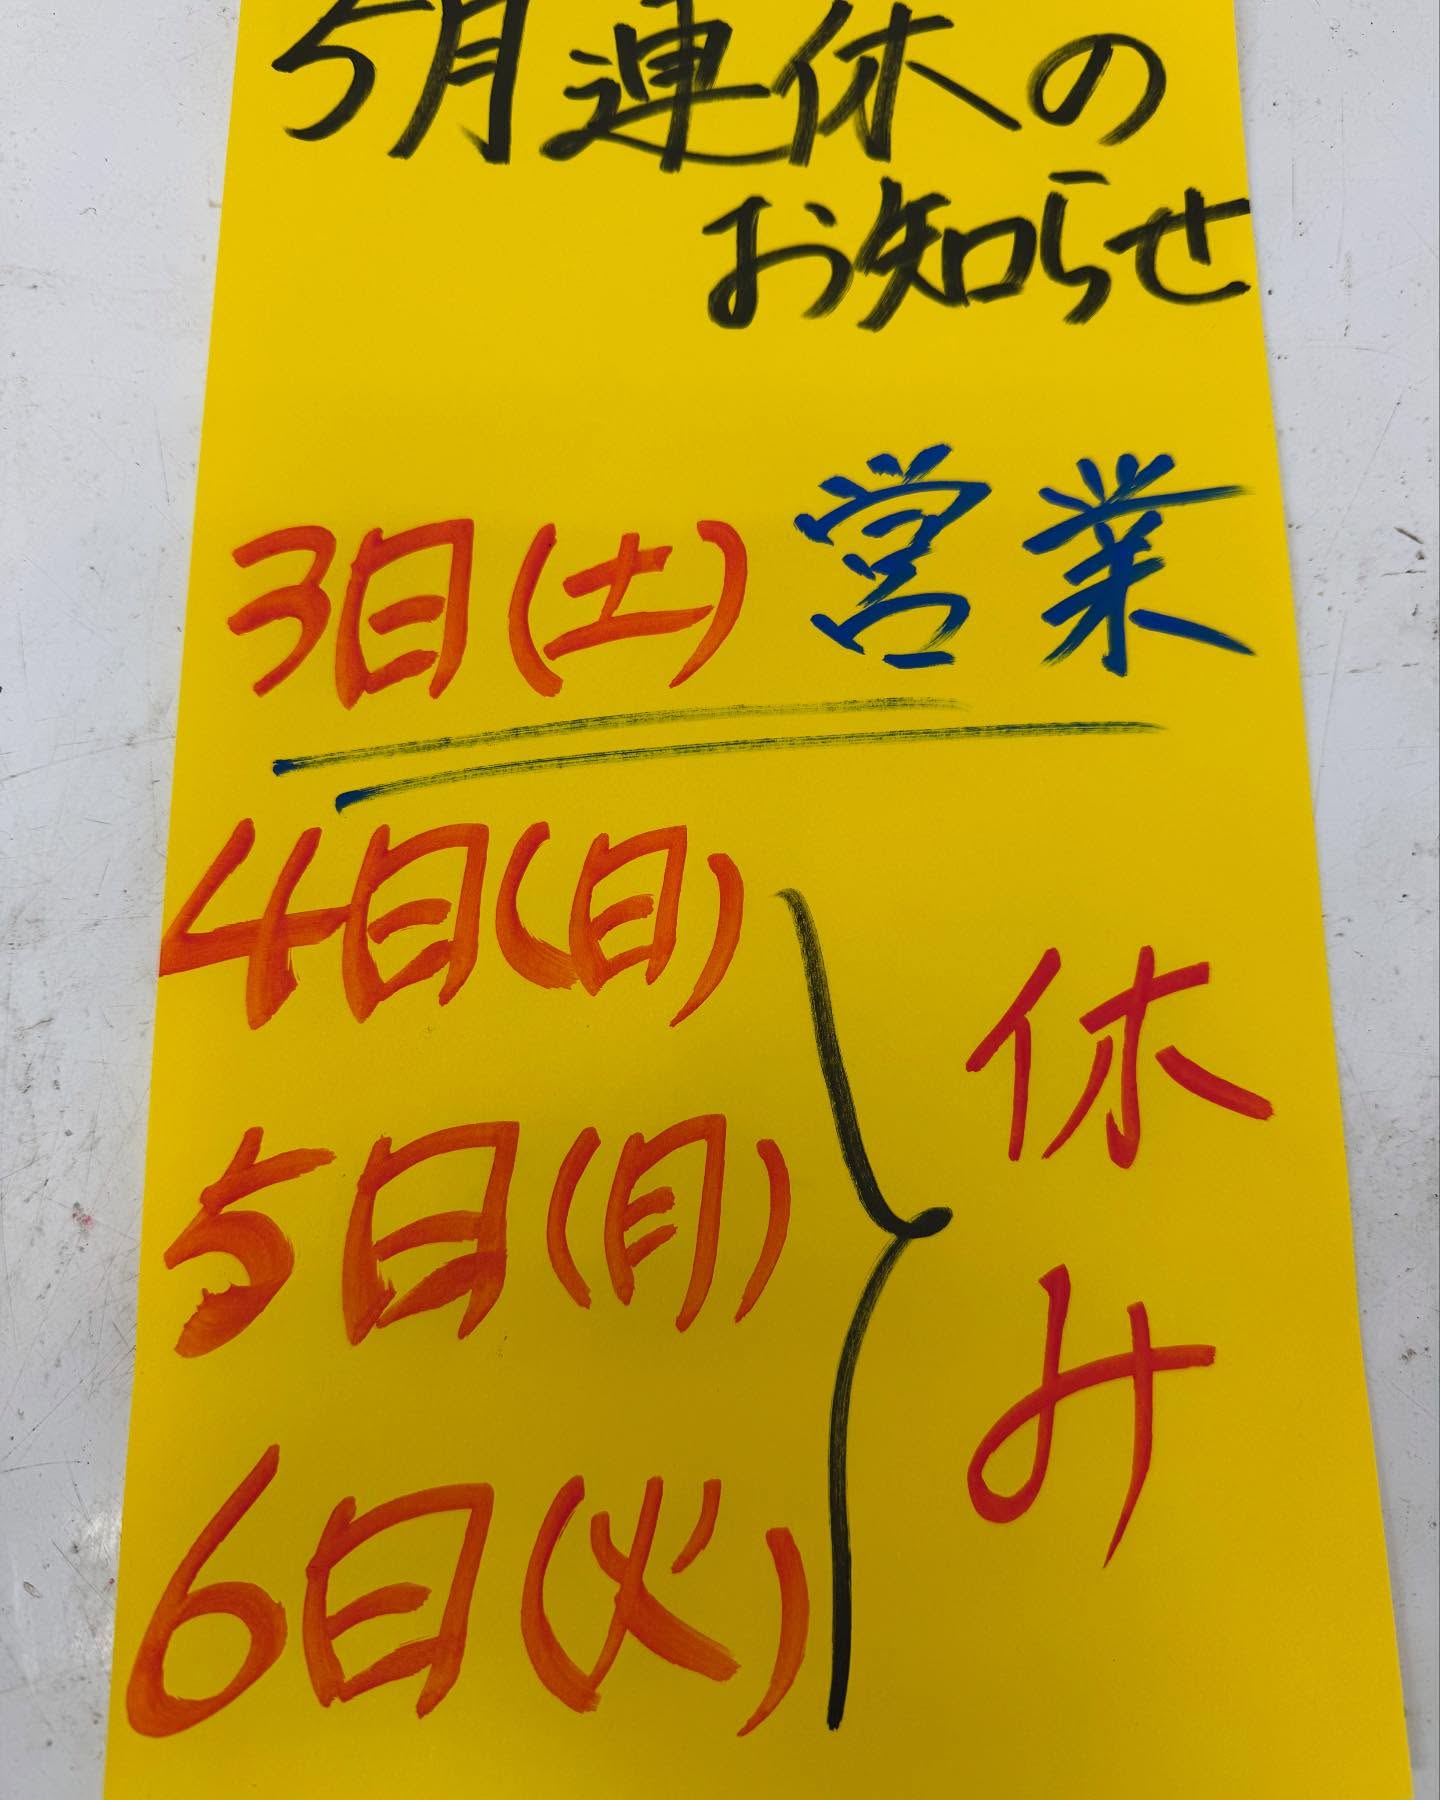 5月連休の
お知らせ
3日(土) 営業
4日(日)
5日(月)
6日(火)
休み